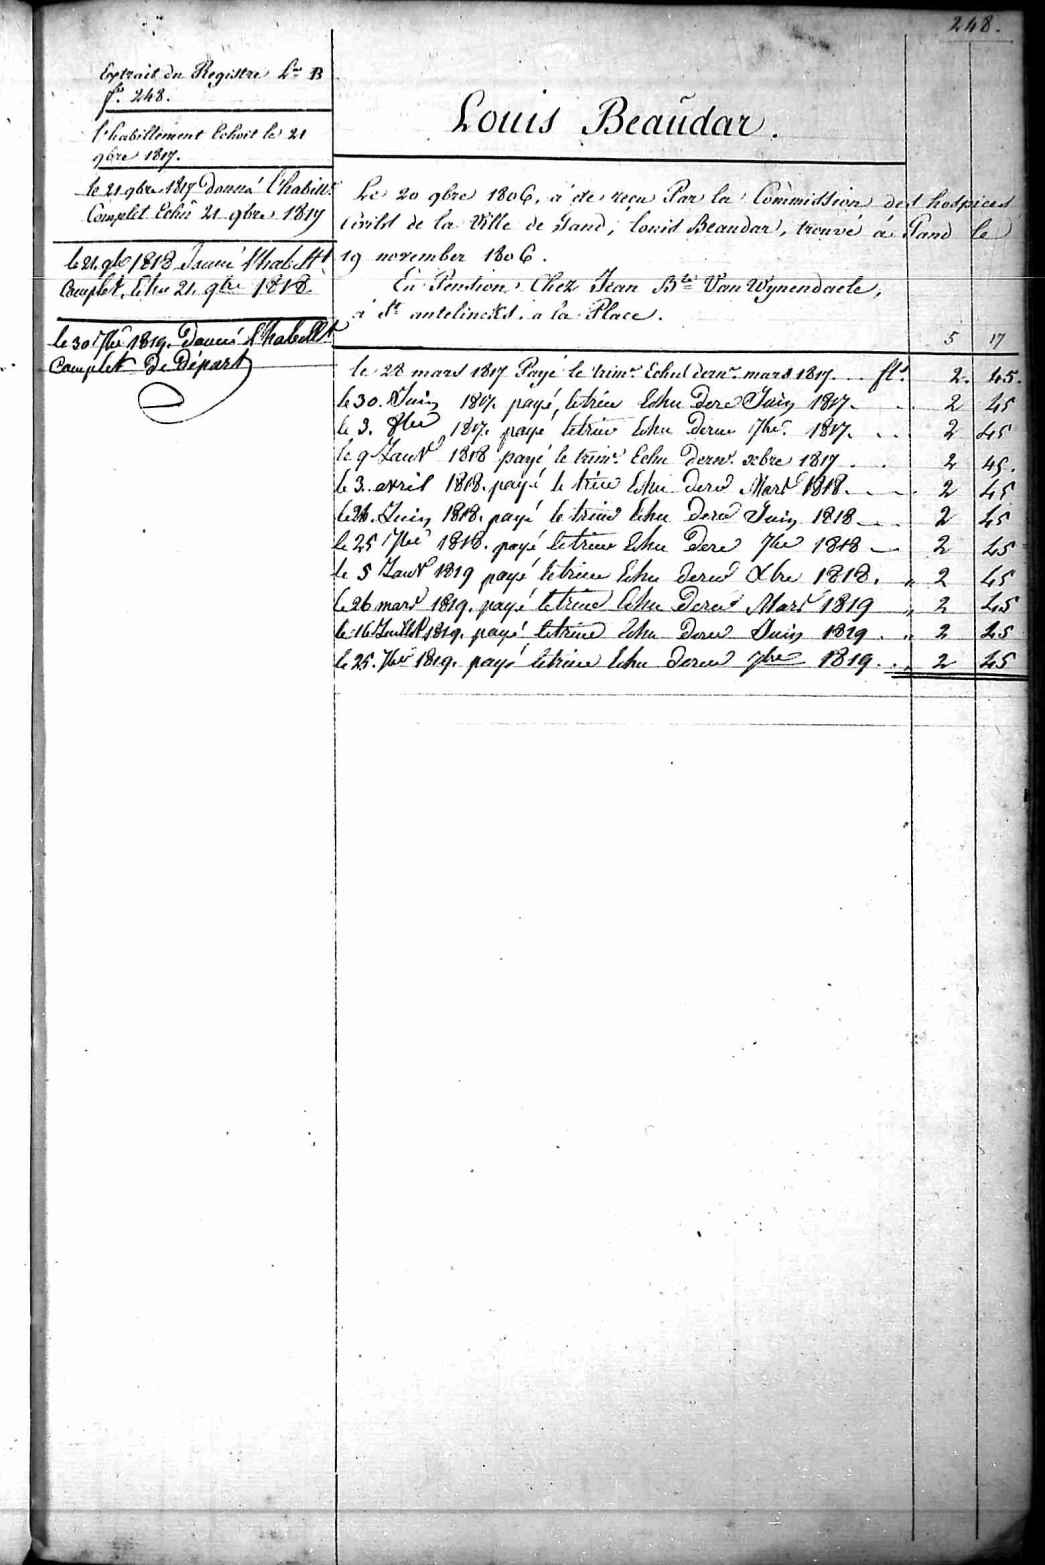 248.
Extrait du Registre L.ra B
f.o 248.
l'habillement Echoit le 21
9bre 1817.
le 21 9bre 1817 donné l'habill.t
Complet Echû 21 9bre 1817
le 21 9bre 1818 donné l'habillt
Complet, Echu 21 9bre 1818
le 30 7bre 1819. Donné l'habillt
Complet De Départ
Louis Beaudar.
Le 20 9bre 1806, a ete reçu Par la Commission des hospices
Civils de la Ville de Gand, Louis Beaudar, trouvé à Gand le
19 november 1806.
En Pension Chez Jean B.te Van Wynendaele,
à S.t antelinckx. a la Place.
5 17
le 28 mars 1817 Payé le trim.e Echu dern.r mars 1817. .. fl.s 2. 45.
le 30. Juin 1817. payé, le trim Echu Dere Juin 1817. . . 2 45
le 3. 8bre 1817. payé le trim Echu derne 7bre 1817. . . 2 45
le 9 Janv.r 1818 payé le trim.e Echu dern.r xbre 1817 . . 2 45.
le 3. avril 1818. payé le trim Echu dern Mars 1818. . . . 2 45
le 26. Juin 1818. payé le trim Echu dern Juin 1818 . . 2 45
le 25 7bre 1818. payé le trim Echu Dere 7bre 1818 — 2 45
le 5 Janv.r 1819 payé le trim Echu dern Xbre 1818. „ 2 45
le 26 mars 1819. payé le trim Echu Dern Mars 1819 „ 2 45
le 16 Juillet 1819. payé le trim Echu Dern Juin 1819 . „ 2 45
le 25. 7bre 1819. payé le trim Echu dern 7bre 1819. . „ 2 45